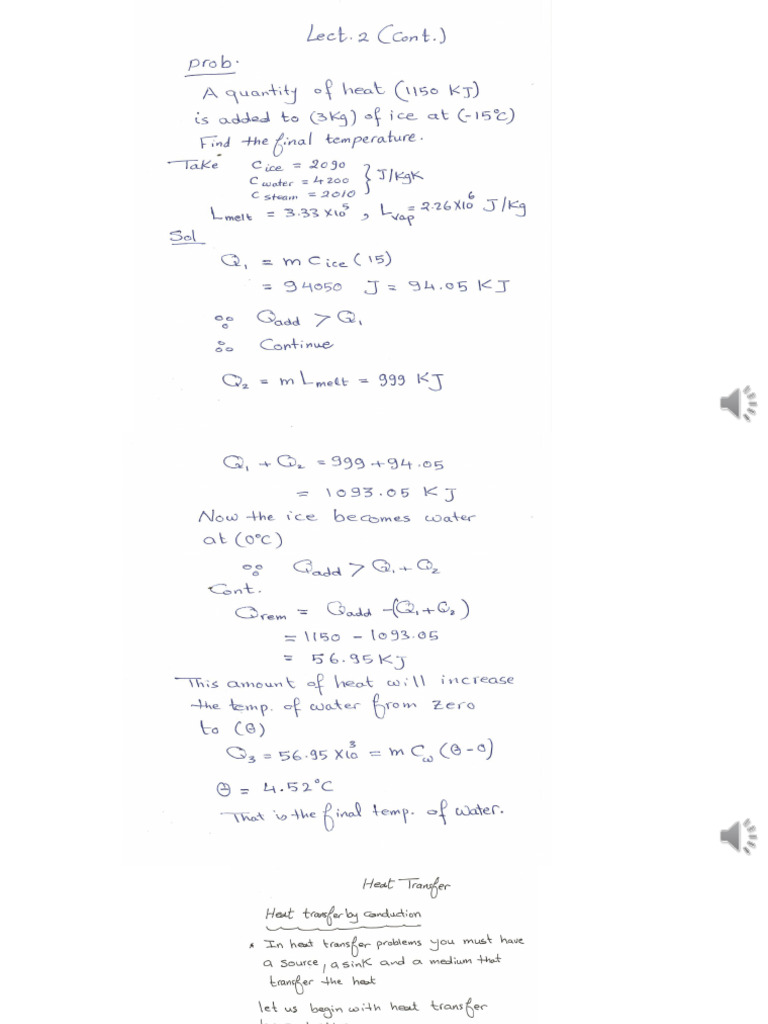 Lect. 2 (Cont.)
prob.
A quantity of heat (1150 KJ)
is added to (3Kg) of ice at (-15°C)
Find the final temperature.
Take C ice = 2090
C water = 4200 } J/KgK
C steam = 2010
L melt = 3.33 x10^5 , L vap = 2.26x10^6 J/Kg
Sol
Q₁ = m C ice (15)
= 94050 J = 94.05 KJ
∵ Qadd > Q₁
∴ Continue
Q₂ = m L melt = 999 KJ
Q₁ + Q₂ = 999 + 94.05
= 1093.05 KJ
Now the ice becomes water
at (0°C)
∵ Qadd > Q₁ + Q₂
Cont.
Qrem = Qadd -(Q₁+Q₂)
= 1150 - 1093.05
= 56.95 KJ
This amount of heat will increase
the temp. of water from zero
to (θ)
Q₃ = 56.95 x10³ = m Cw (θ-0)
θ = 4.52°C
That is the final temp. of water.
Heat Transfer
Heat transfer by conduction
* In heat transfer problems you must have
a source, a sink and a medium that
transfer the heat
let us begin with heat transfer